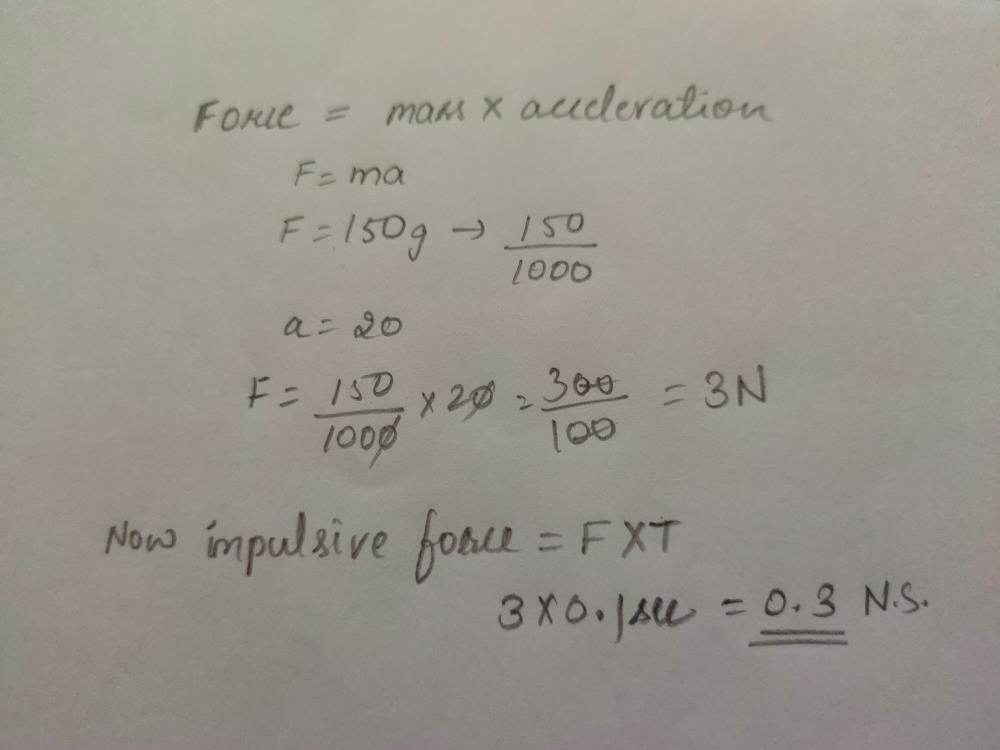 Force = mass x acceleration
F = ma
F = 150g → 150/1000
a = 20
F = 150/1000 x 20 = 300/100 = 3N
Now impulsive force = F X T
3 X 0.1 sec = 0.3 N.S.